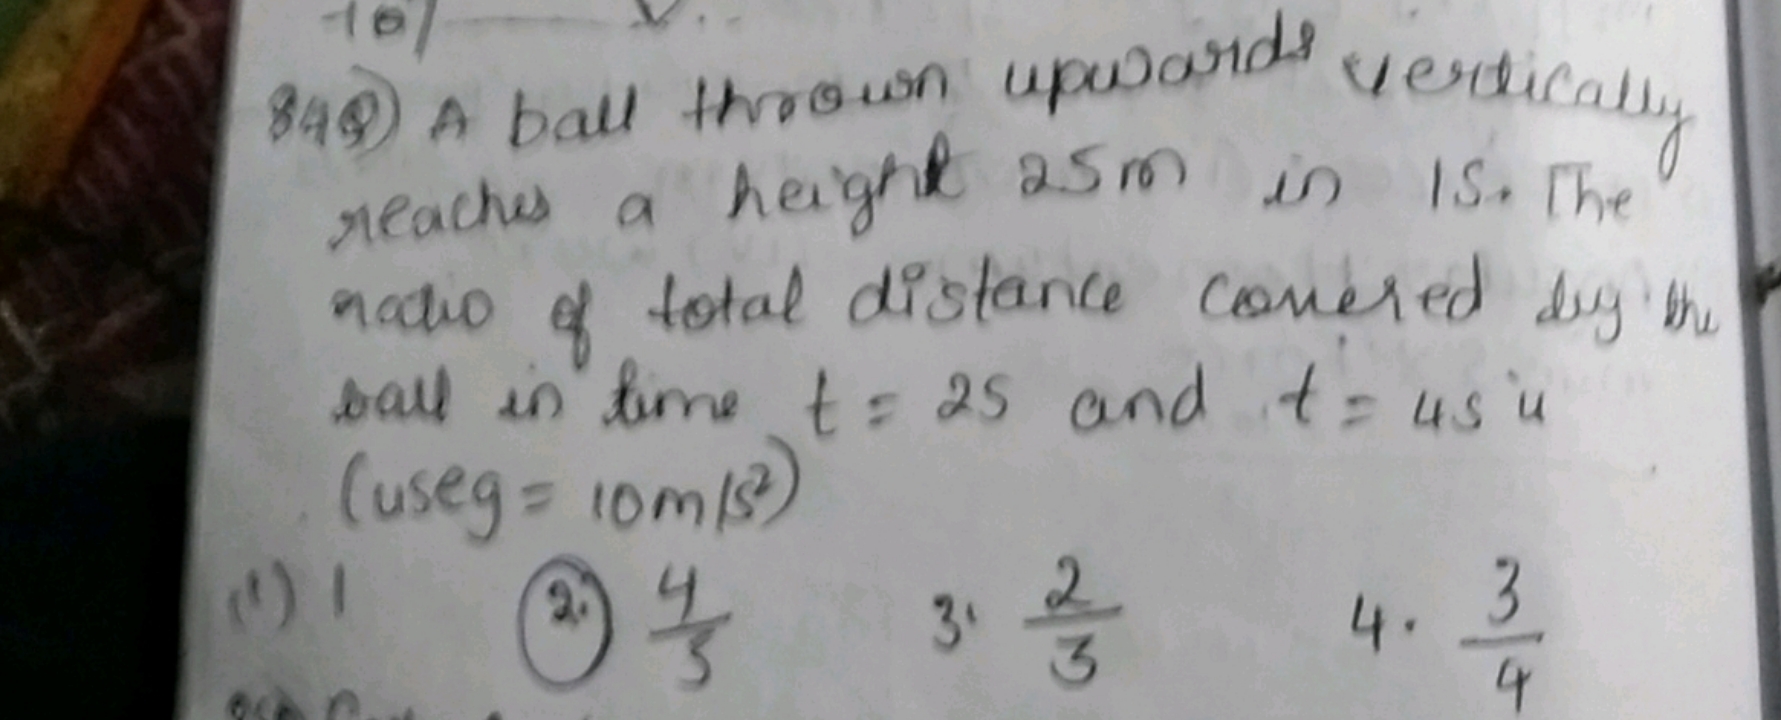 10/
84Q) A ball thrown upwards vertically
reaches a height 25m in 1s. The
ratio of total distance covered by the
ball in time t = 2s and t = 4s is
(use g = 10m/s²)
(1) 1 2. 4/3 3. 2/3 4. 3/4